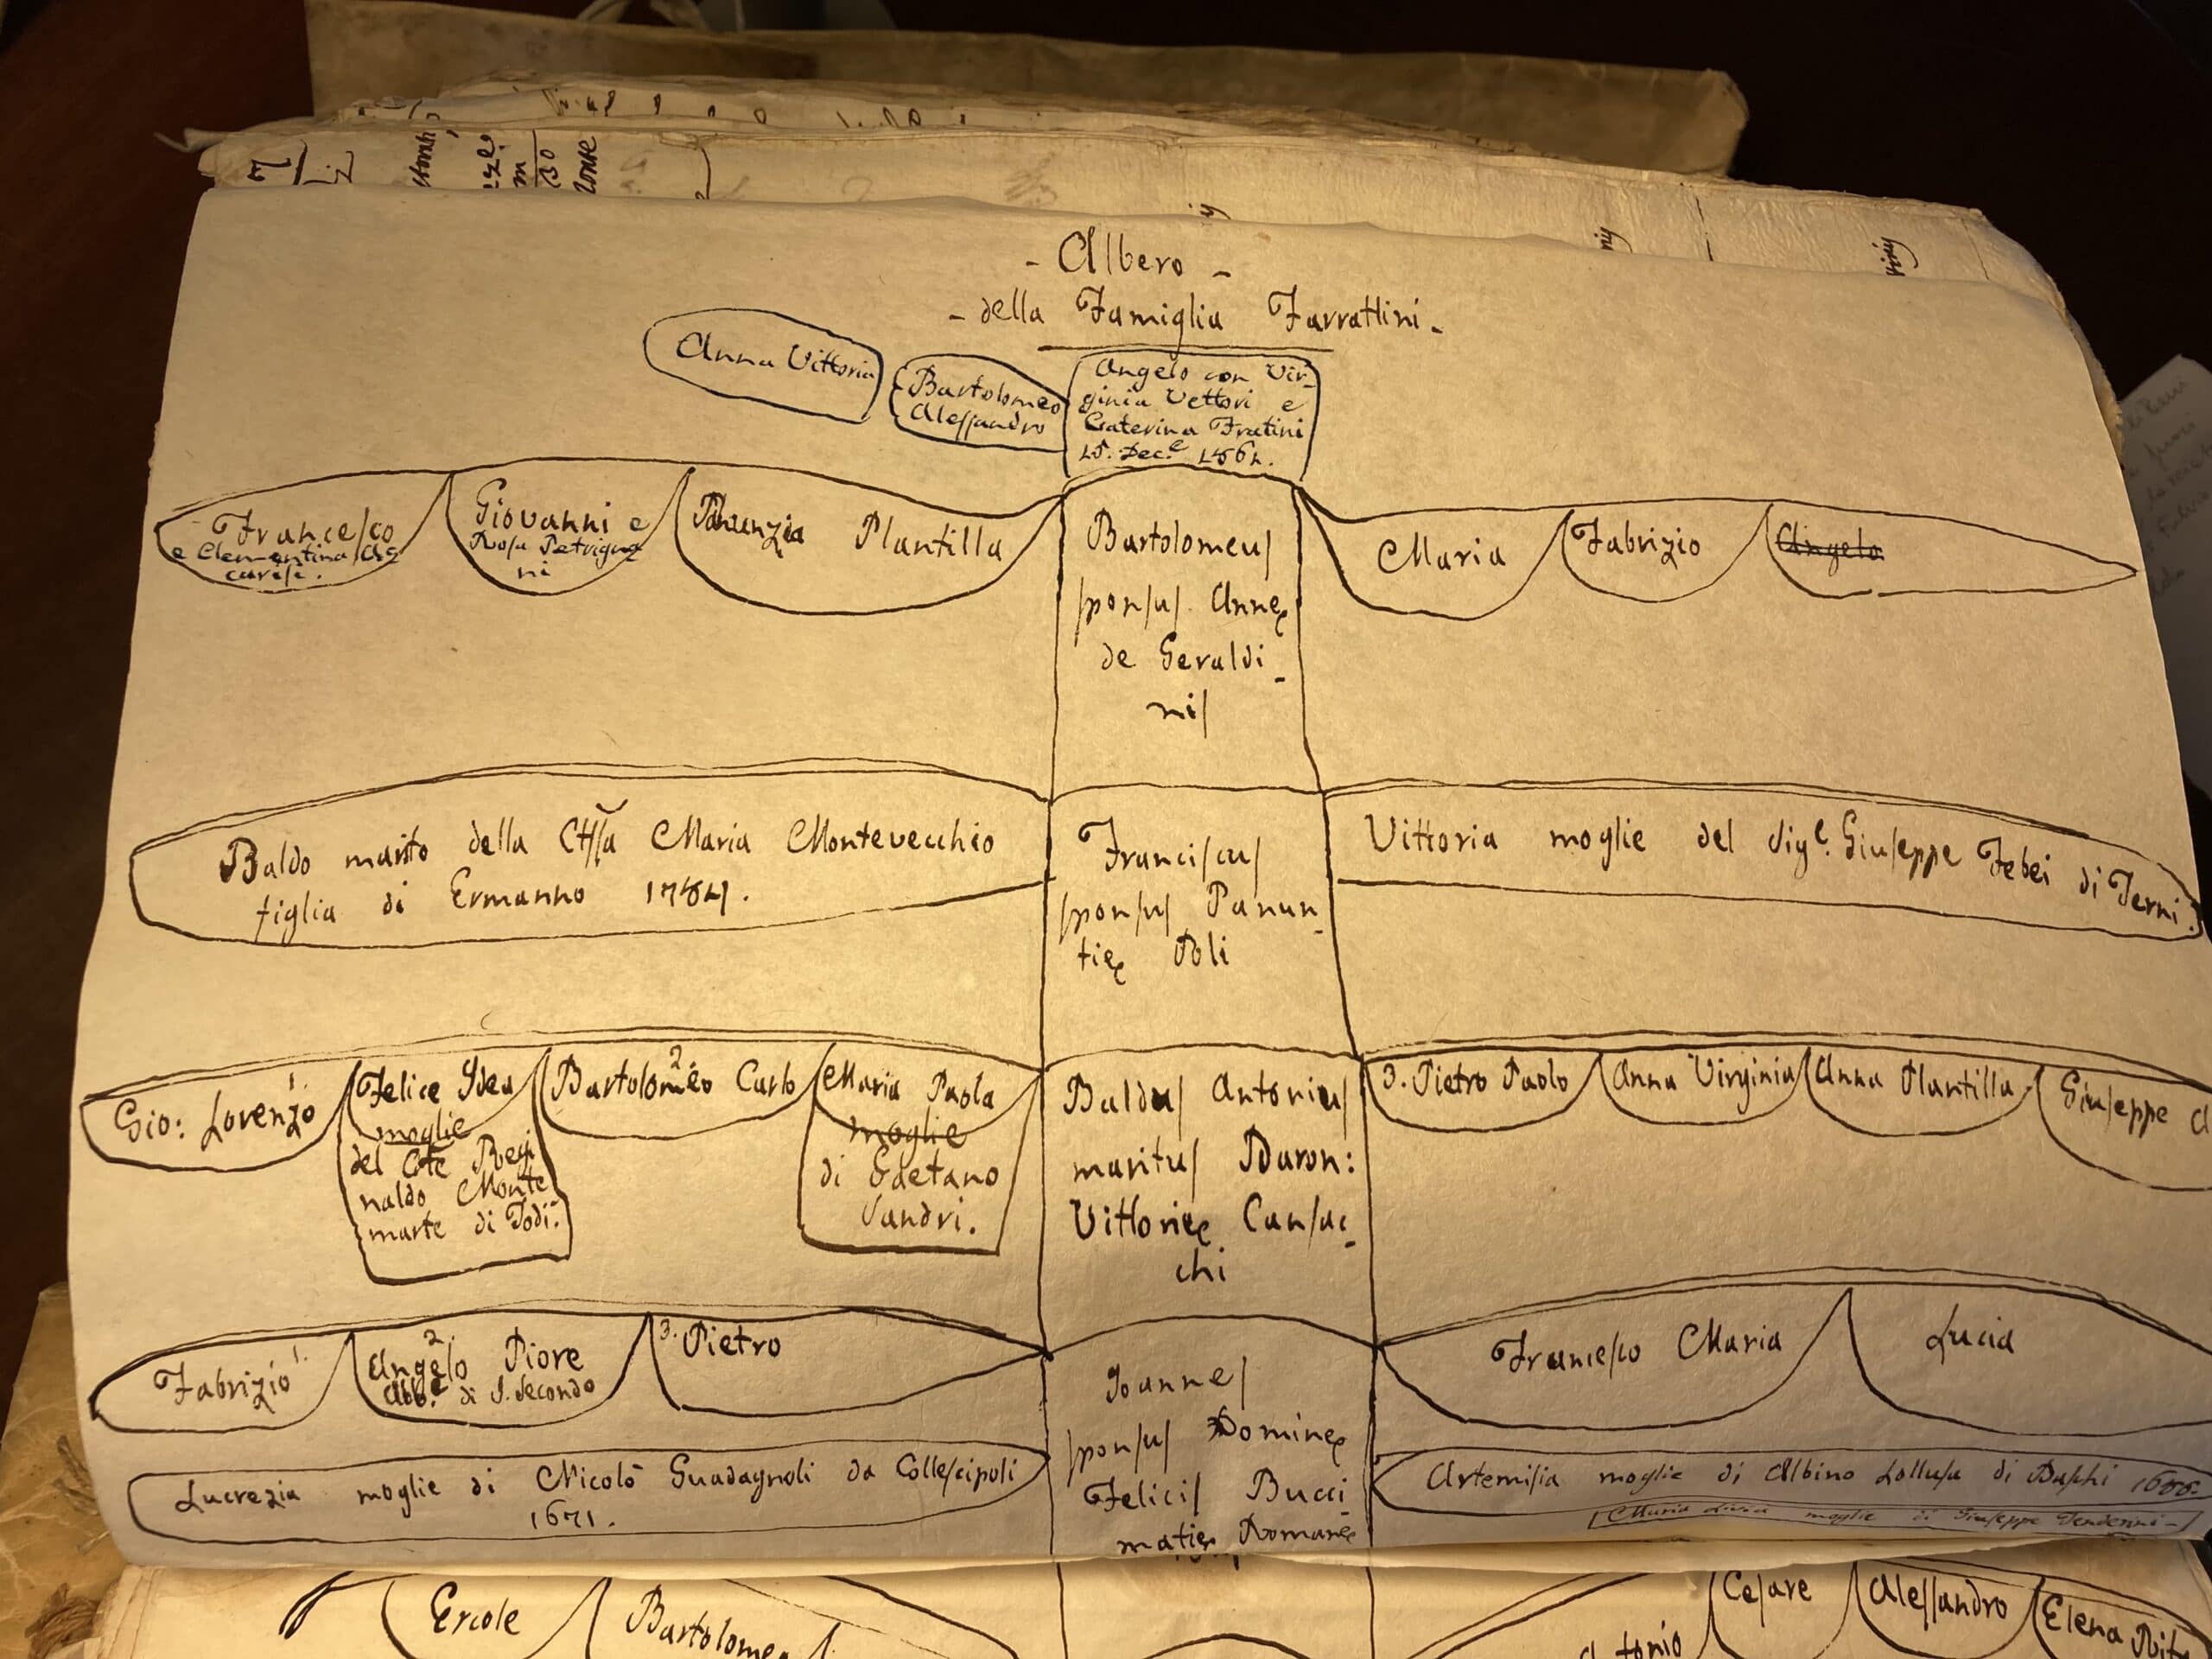 - Albero -
- della Famiglia Farrattini -
Anna Vittoria
Bartolomeo
Alessandro
Angelo con Vir-
ginia Vettori e
Caterina Fratini
15. Dec.e
Francesco
e Clementina
Giovanni e
Rosa Petrigna
ni
Panunzia Plantilla
Bartolomeus
sponsus Annę
de Geraldi-
nis
Maria
Fabrizio
Angelo
Baldo marito della Maria Montevecchio
figlia di Ermanno
Franciscus
sponsus Panun-
tię Poli
Vittoria moglie del Sig.e Giuseppe Febei di Terni.
Gio: Lorenzo 1.
Felice Idea
moglie
del Cote Regi
naldo Monte
marte di Todi.
Bartolomeo 2 Carlo
Maria Paola
moglie
di Gaetano
Sandri.
Baldus Antonius
maritus Baron:
Vittorię Cansac-
chi
3. Pietro Paolo
Anna Virginia
Anna Plantilla
Giuseppe
Fabrizio 1.
2. Angelo Piore
Abb.e di S. Secondo
3. Pietro
Joannes
sponsus Dominę
Felicis Bucci
matię Romanę
Francesco Maria
Lucia
Lucrezia moglie di Nicolò Guadagnoli da Collescipoli
1671.
Artemisia moglie di Albino di Baschi
Maria moglie di Giuseppe
Ercole
Bartolomeo
Cesare
Alessandro
Elena